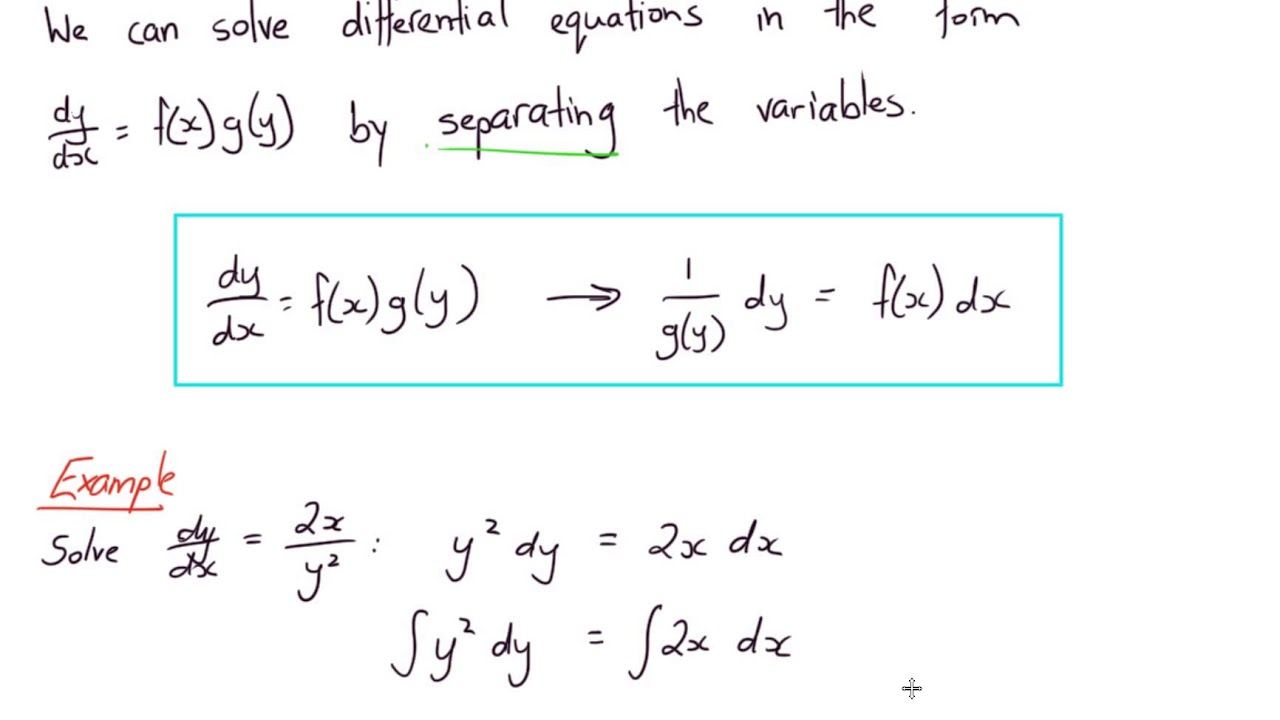 We can solve differential equations in the form
dy/dx = f(x)g(y) by separating the variables.
dy/dx = f(x)g(y) → 1/g(y) dy = f(x) dx
Example
Solve dy/dx = 2x/y² : y² dy = 2x dx
∫y² dy = ∫2x dx